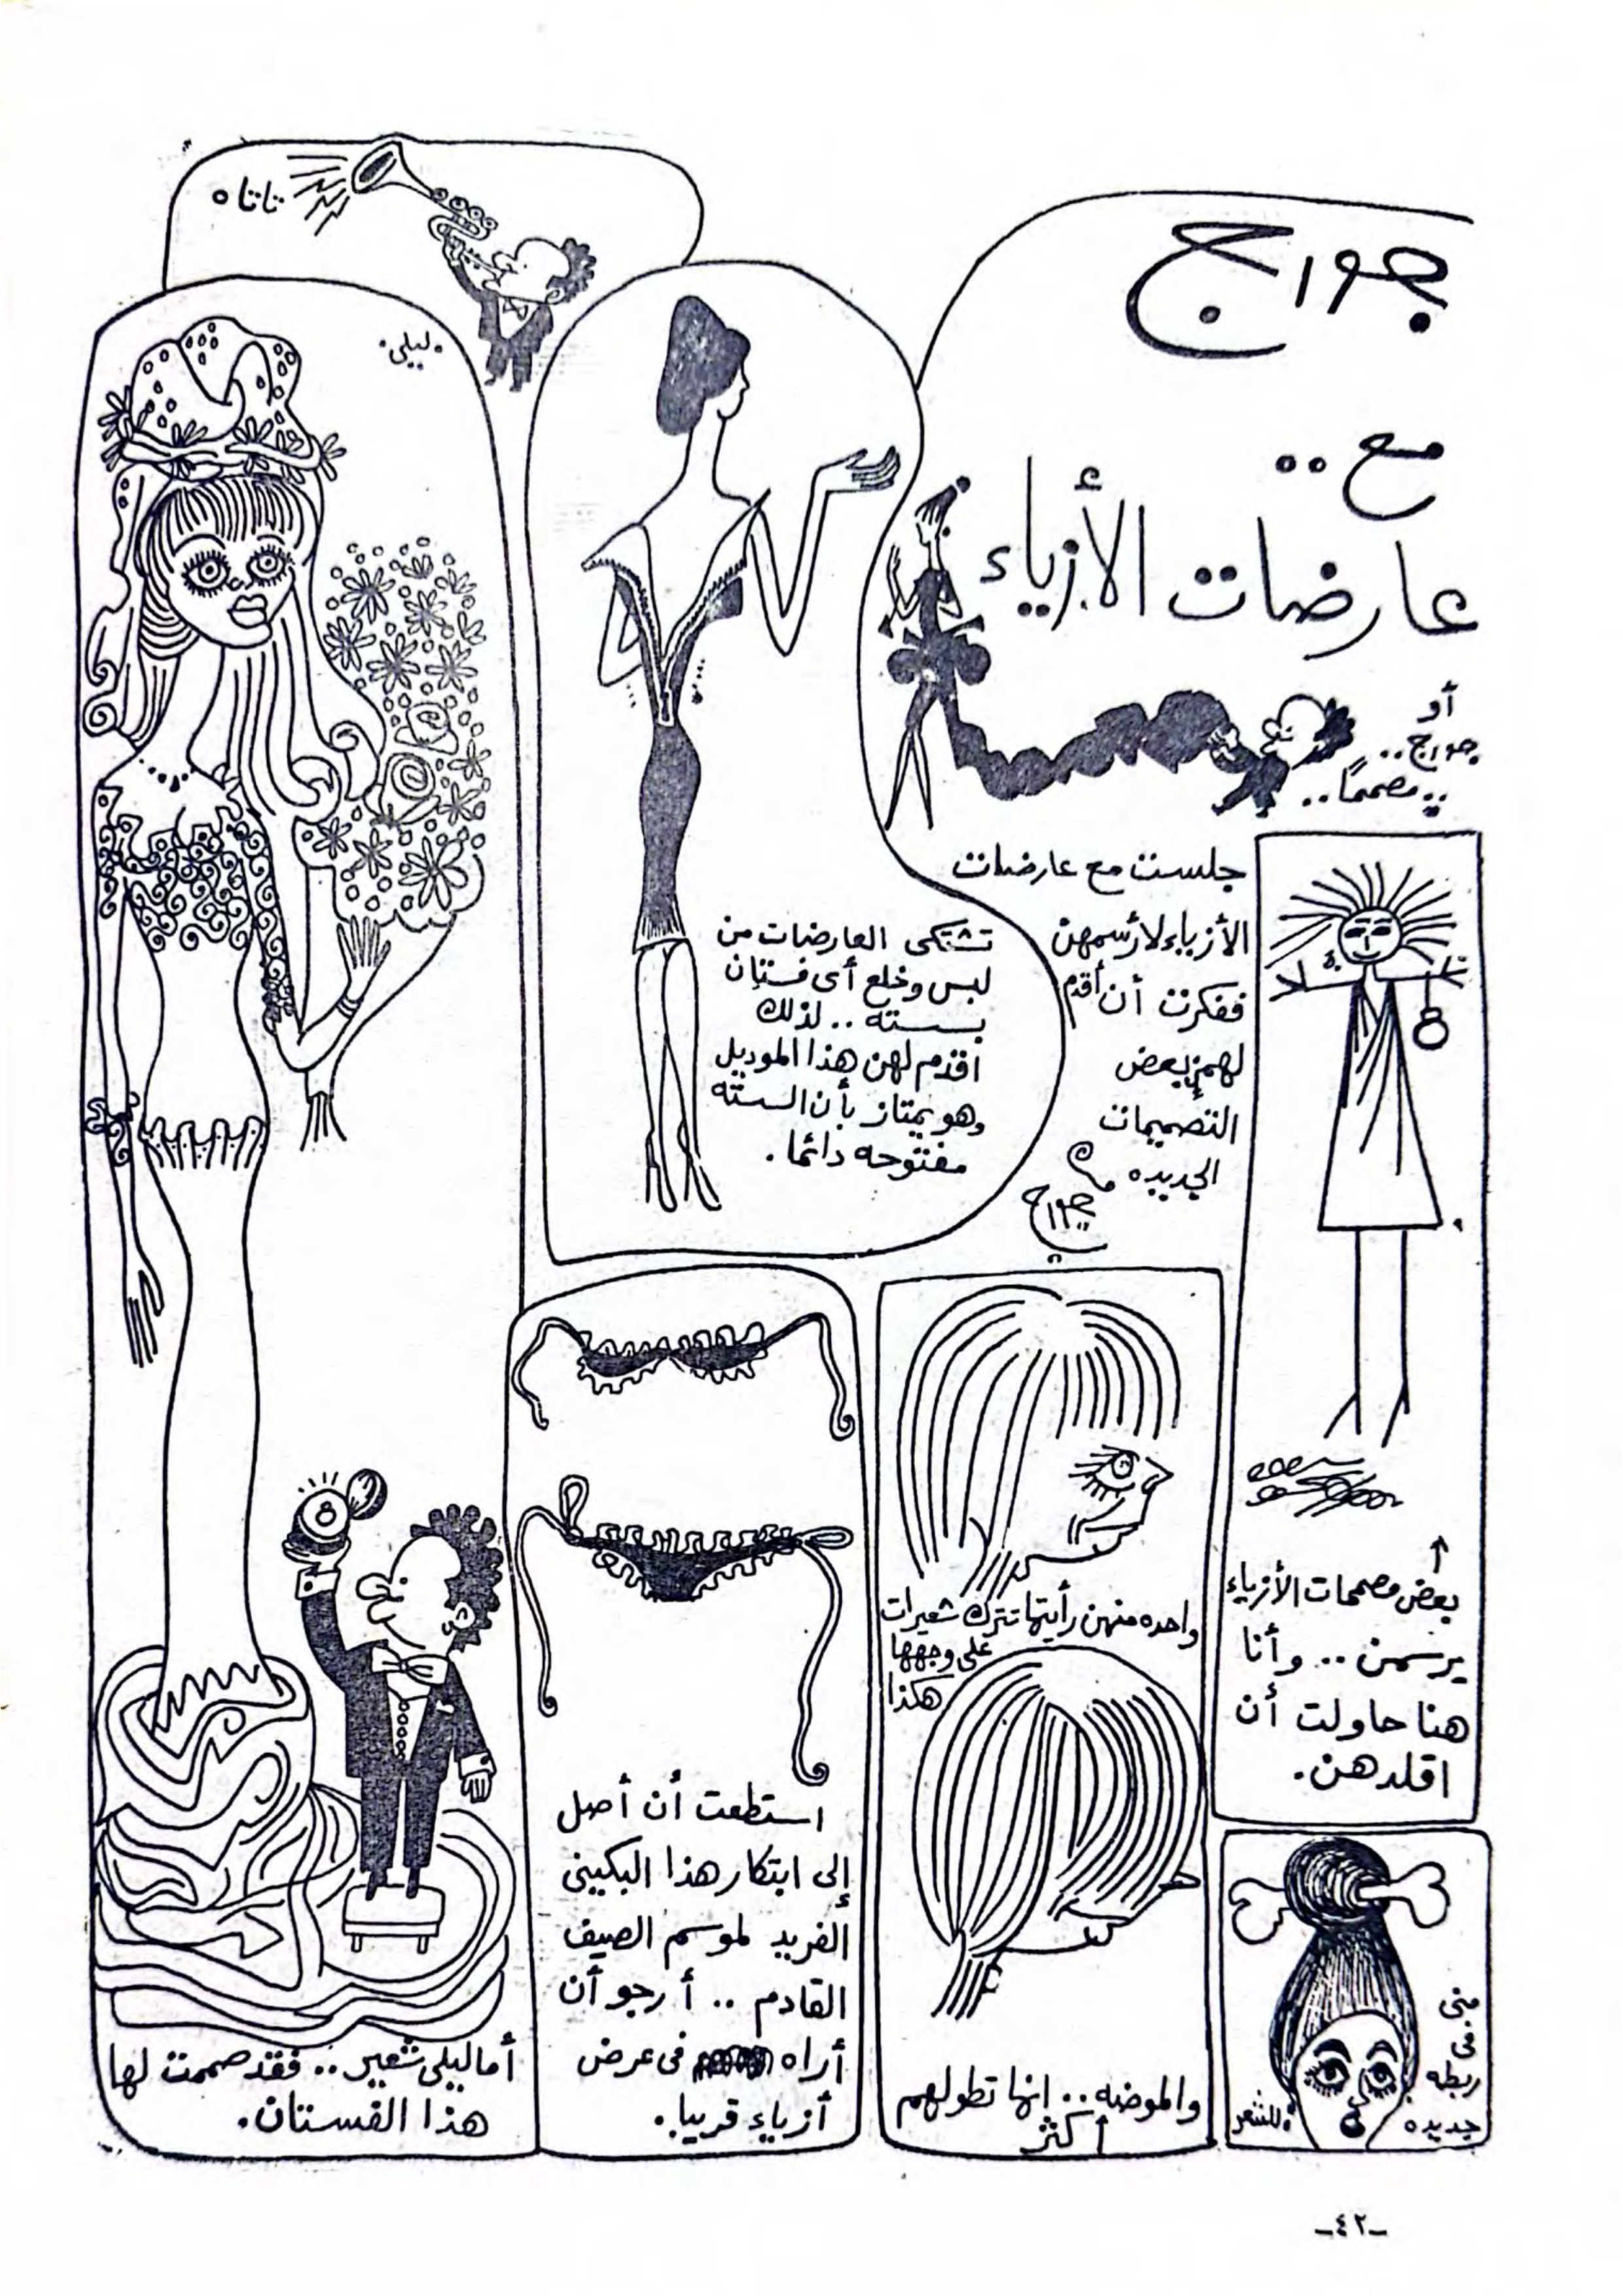 جورج
مع ..
عارضات الأزياء
أو
جورج ..
.. مصمماً ..
جلست مع عارضات
الأزياء لأرسمهن
ففكرت أن أقدم
لهن بعض
التصميمات
الجديده
جورج
تشتكى العارضات من
لبس وخلع أى فستان
بسسته .. لذلك
اقدم لهن هذا الموديل
وهو يمتاز بأن السسته
مفتوحه دائما .
تاتاه
ليلى
بعض مصممات الأزياء
يرسمن .. وأنا
هنا حاولت أن
اقلدهن .
منى
فى
ربطه
جديده
للشعر
واحده منهن رأيتها تترك شعيرات
على وجهها
هكذا
والموضه .. انها تطولهم
أكثر
استطعت أن أصل
إلى ابتكار هذا البكينى
الفريد لموسم الصيف
القادم .. أرجو أن
أراه فى عرض
أزياء قريبا .
أما ليلى شعير .. فقد صممت لها
هذا الفستان .
-٤٢-